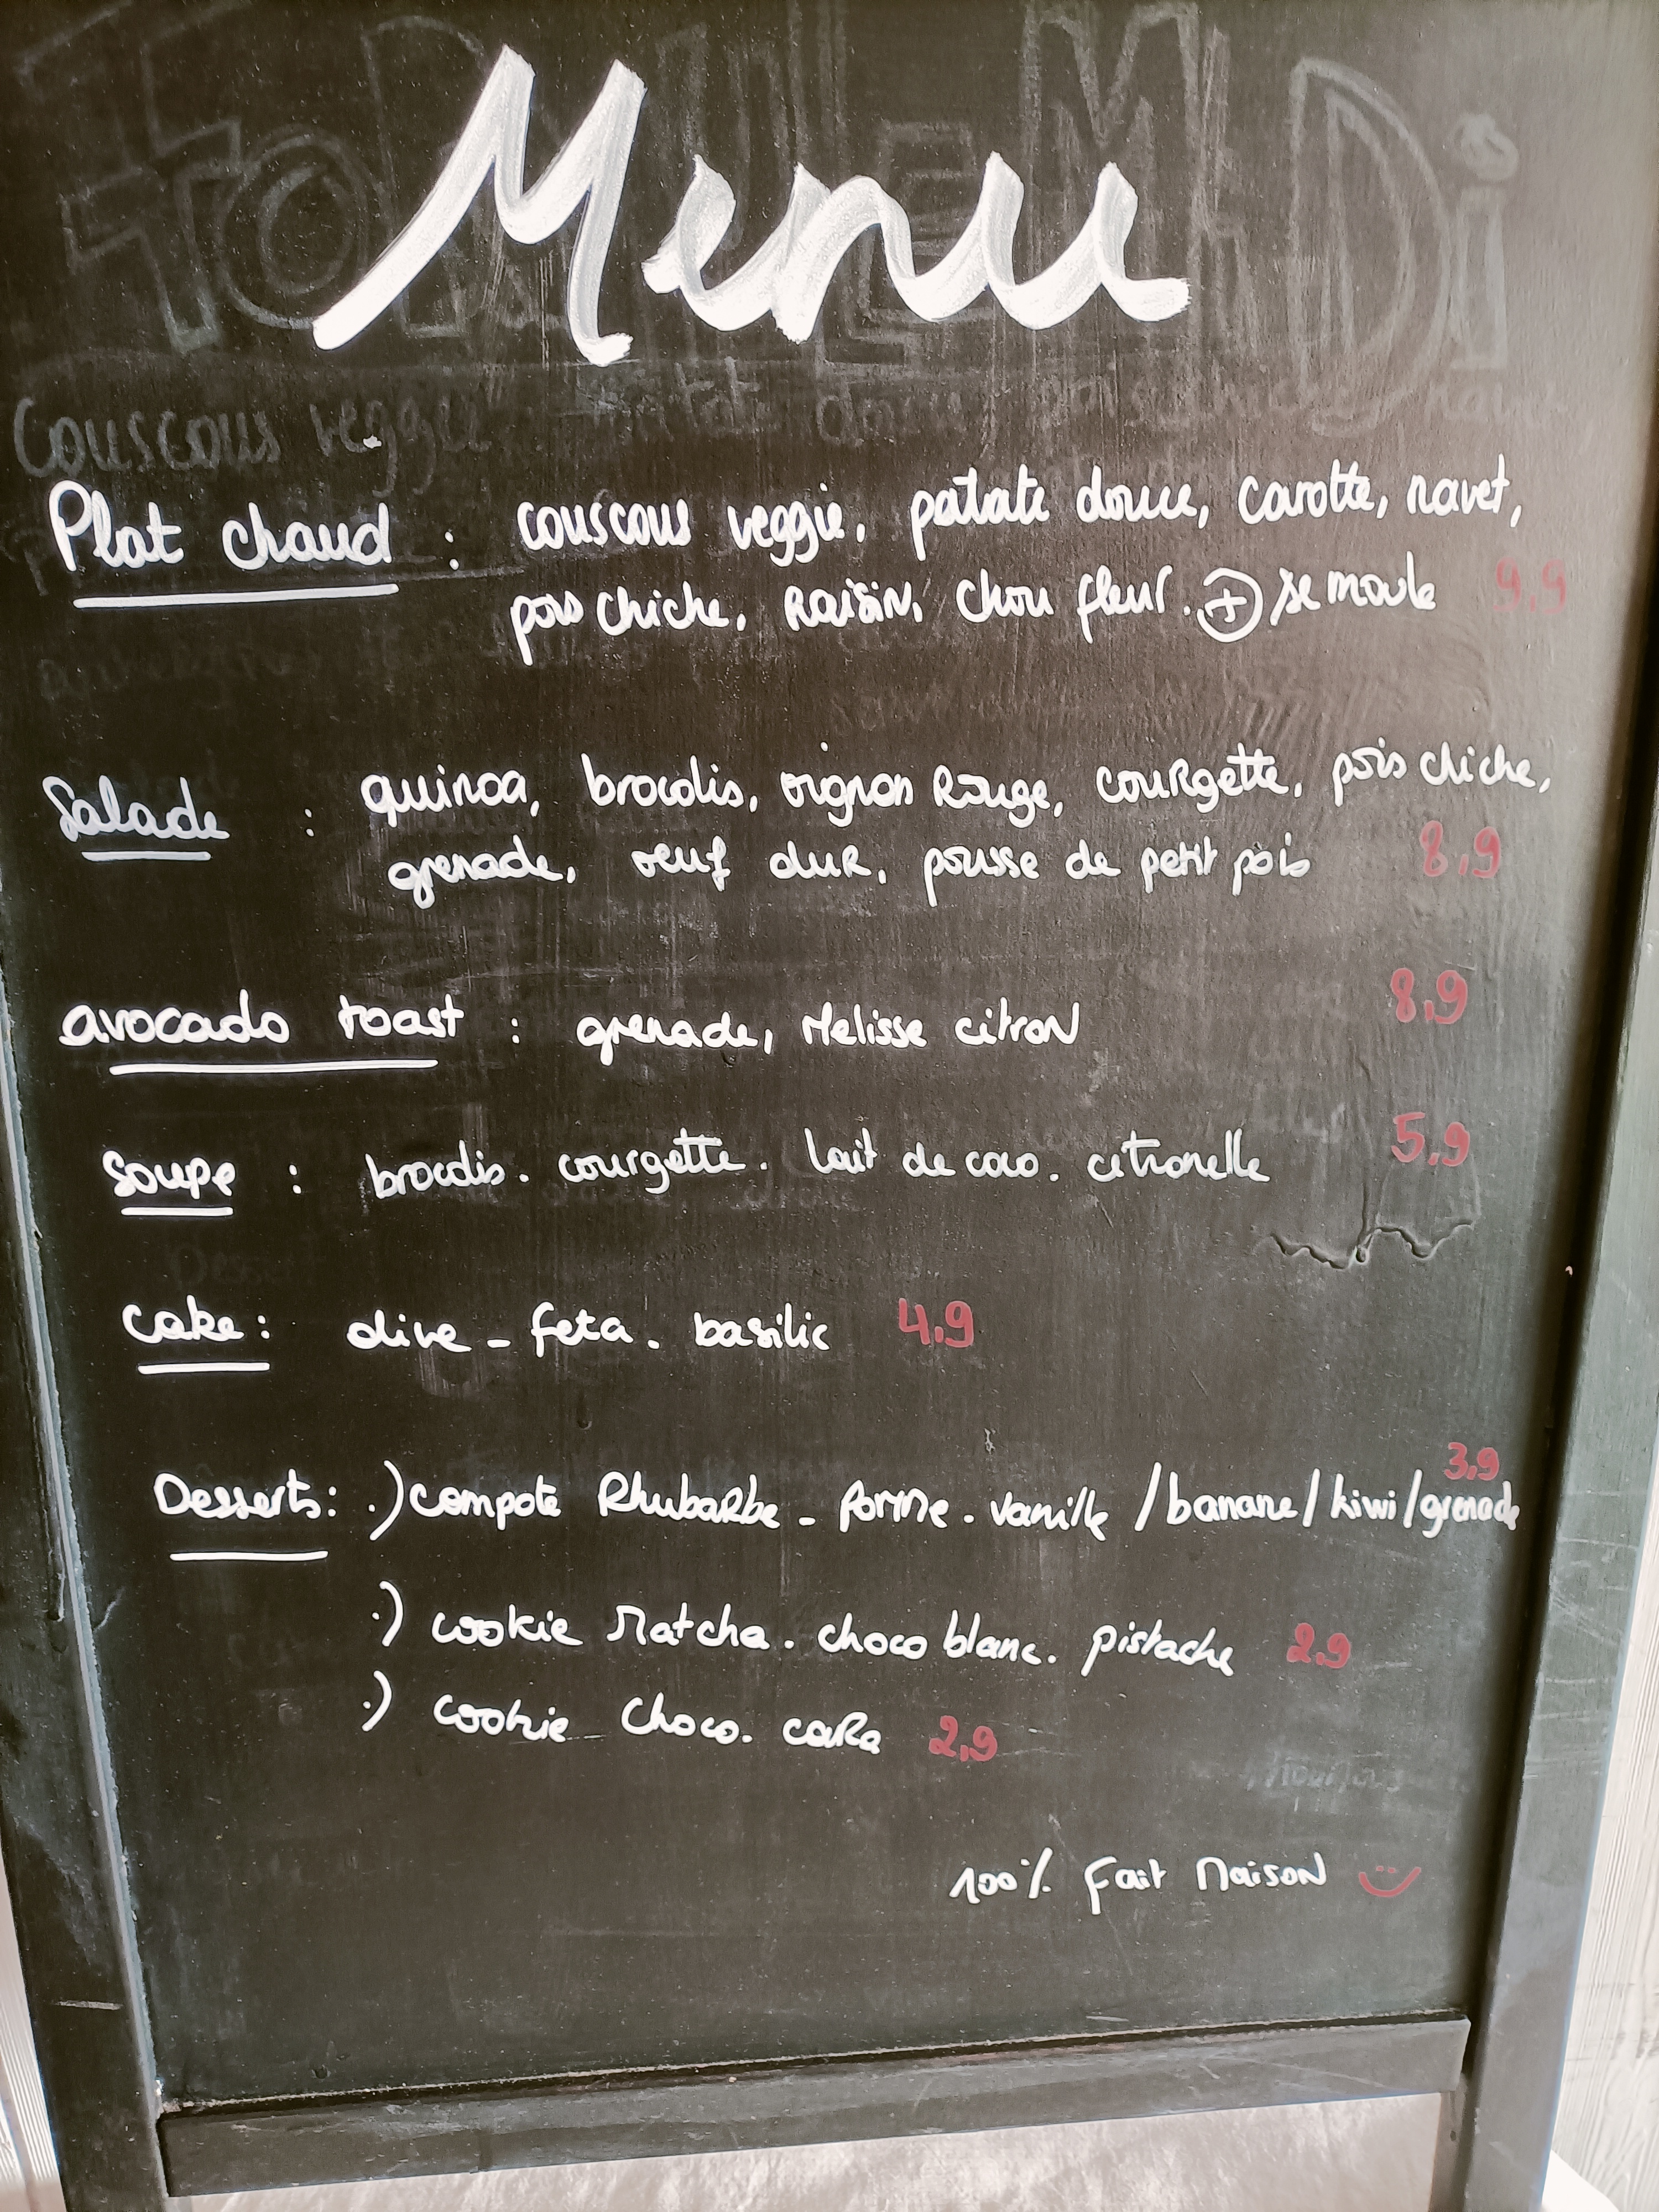 Menu
Couscous veggie
Plat chaud : couscous veggie, patate douce, carotte, navet,
pois chiche, Raisin, chou fleur. + semoule 9,9
Salade : quinoa, brocolis, oignon Rouge, courgette, pois chiche,
grenade, oeuf dur, pousse de petit pois 8,9
avocado toast : grenade, Melisse citron 8,9
Soupe : brocolis. courgette. lait de coco. citronelle 5,9
Cake : olive - feta. basilic 4,9
Desserts : .) compote Rhubarbe - pomme - vanille / banane / kiwi / grenade 3,9
.) cookie Matcha. choco blanc. pistache 2,9
.) cookie choco. cara 2,9
100% Fait Maison